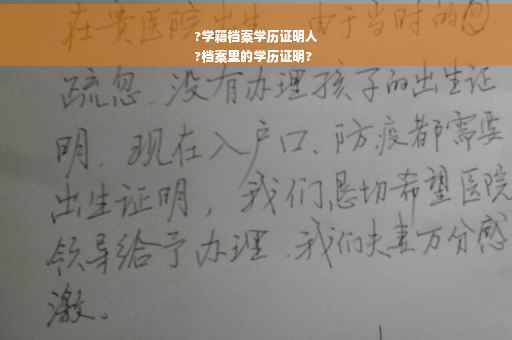 在贵医院出生，由于当时的
?学籍档案学历证明人
?档案里的学历证明?
疏忽，没有办理孩子的出生证
明。现在入户口、防疫都需要
出生证明，我们恳切希望医院
领导给予办理，我们夫妻万分感
激。